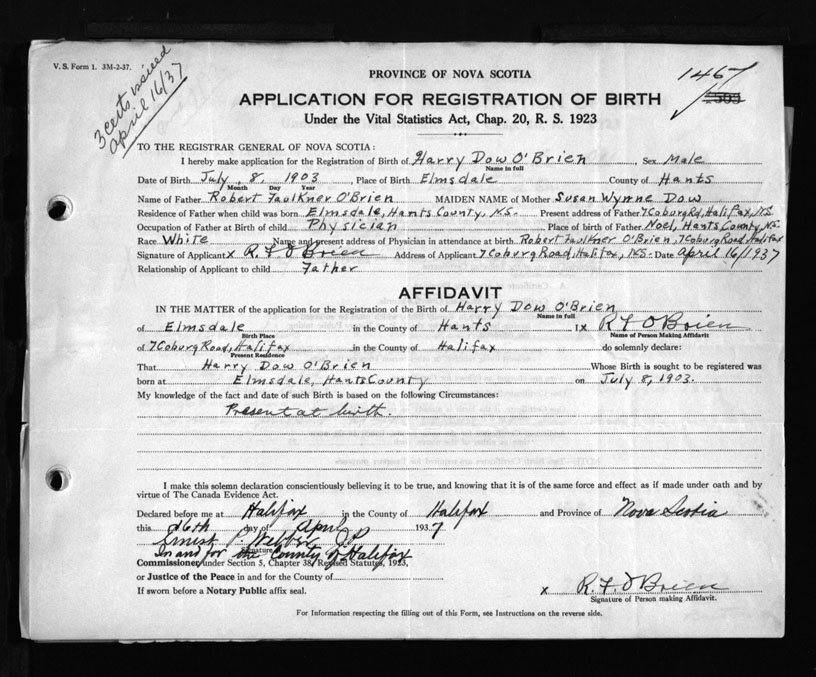 V. S. Form 1. 3M-2-37.
3 certs issued
april 16/37
1467
PROVINCE OF NOVA SCOTIA
APPLICATION FOR REGISTRATION OF BIRTH
Under the Vital Statistics Act, Chap. 20, R. S. 1923
TO THE REGISTRAR GENERAL OF NOVA SCOTIA:
I hereby make application for the Registration of Birth of Harry Dow O'Brien, Sex Male
Name in full
Date of Birth July, 8, 1903, Place of Birth Elmsdale County of Hants
Month Day Year
Name of Father Robert Faulkner O'Brien MAIDEN NAME of Mother Susan Wynne Dow
Residence of Father when child was born Elmsdale, Hants County, N.S. Present address of Father 7 Coburg Rd, Halifax, N.S.
Occupation of Father at Birth of child Physician Place of birth of Father Noel, Hants County, N.S.
Race White Name and present address of Physician in attendance at birth Robert Faulkner O'Brien, 7 Coburg Road, Halifax
Signature of Applicant x R. F. O'Brien Address of Applicant 7 Coburg Road, Halifax, N.S. Date April 16/1937
Relationship of Applicant to child Father
AFFIDAVIT
IN THE MATTER of the application for the Registration of the Birth of Harry Dow O'Brien
Name in full
of Elmsdale in the County of Hants I x R F O'Brien
Birth Place Name of Person Making Affidavit
of 7 Coburg Road, Halifax in the County of Halifax do solemnly declare:
Present Residence
That Harry Dow O'Brien Whose Birth is sought to be registered was
born at Elmsdale, Hants County on July 8, 1903.
My knowledge of the fact and date of such Birth is based on the following Circumstances:
Present at birth.
I make this solemn declaration conscientiously believing it to be true, and knowing that it is of the same force and effect as if made under oath and by
virtue of The Canada Evidence Act.
Declared before me at Halifax in the County of Halifax and Province of Nova Scotia
this 16th day of April 1937
Ernest P. Webber J.P.
Signature
In and for the County of Halifax
Commissioner under Section 5, Chapter 38, Revised Statutes, 1923,
or Justice of the Peace in and for the County of
If sworn before a Notary Public affix seal.
x R. F. O'Brien
Signature of Person making Affidavit.
For Information respecting the filling out of this Form, see Instructions on the reverse side.